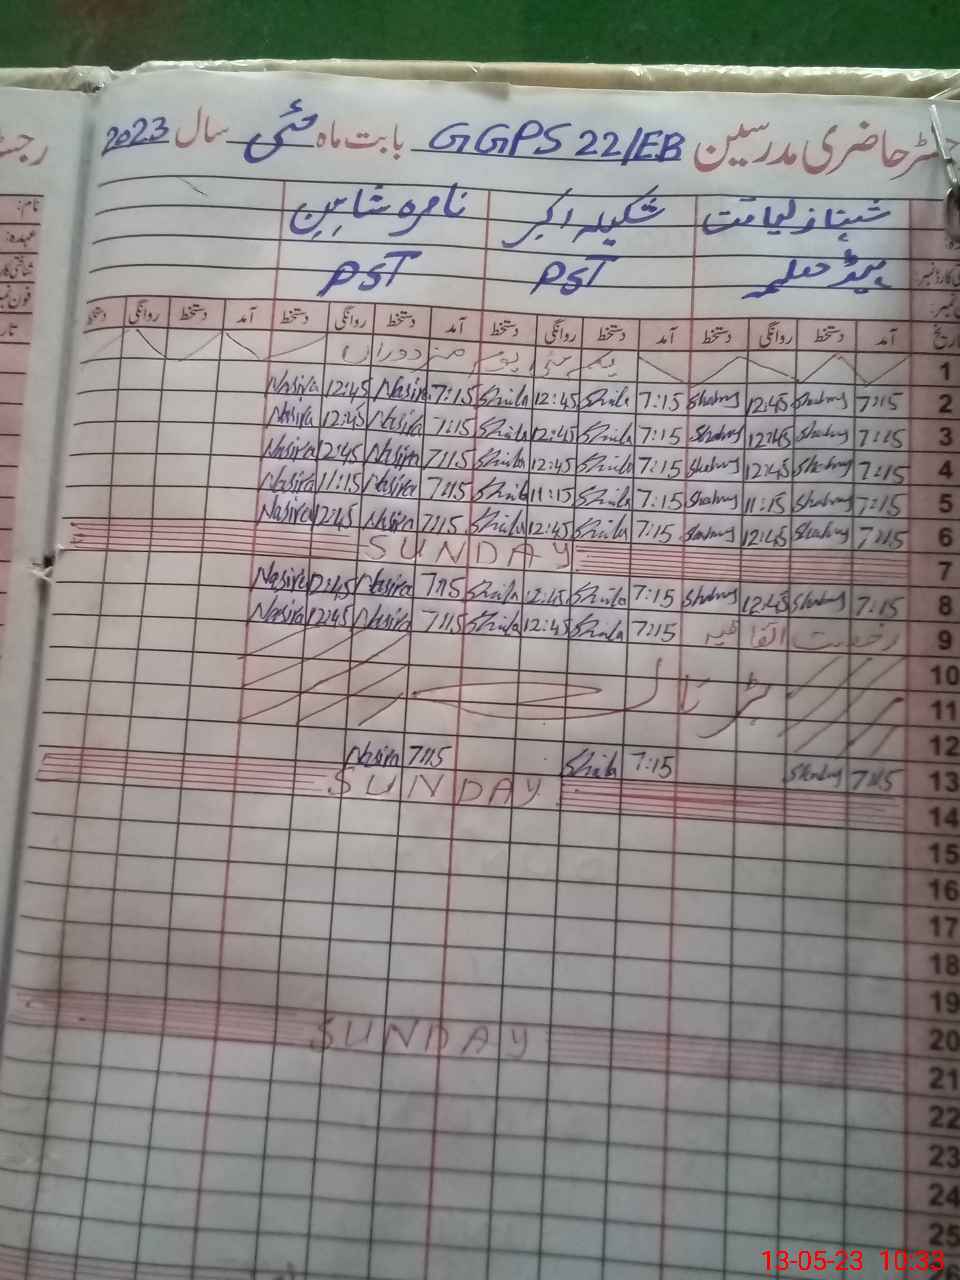 رجسٹر حاضری مدرسین GGPS 22/EB بابت ماہ مئی سال 2023
شہناز لیاقت شکیلہ اکبر ناصرہ شاہین
ہیڈ معلمہ PST PST
نام:
عہدہ:
تاریخ آمد دستخط روانگی دستخط آمد دستخط روانگی دستخط آمد دستخط روانگی دستخط آمد دستخط روانگی دستخط
1 یکم مئی یوم مزدوراں
2 7:15 Shahnaz 12:45 Shahnaz 7:15 Shkila 12:45 Shkila 7:15 Nasira 12:45 Nasira
3 7:15 Shahnaz 12:45 Shahnaz 7:15 Shkila 12:45 Shkila 7:15 Nasira 12:45 Nasira
4 7:15 Shahnaz 12:45 Shahnaz 7:15 Shkila 12:45 Shkila 7:15 Nasira 12:45 Nasira
5 7:15 Shahnaz 11:15 Shahnaz 7:15 Shkila 11:15 Shkila 7:15 Nasira 11:15 Nasira
6 7:15 Shahnaz 12:45 Shahnaz 7:15 Shkila 12:45 Shkila 7:15 Nasira 12:45 Nasira
7 SUNDAY
8 7:15 Shahnaz 12:45 Shahnaz 7:15 Shkila 12:45 Shkila 7:15 Nasira 12:45 Nasira
9 رخصت اتفاقیہ 7:15 Shkila 12:45 Shkila 7:15 Nasira 12:45 Nasira
10
11 ہڑتال
12
13 7:15 Shahnaz 7:15 Shkila 7:15 Nasira
14 SUNDAY
15
16
17
18
19
20
21 SUNDAY
22
23
24
25
13-05-23 10:33